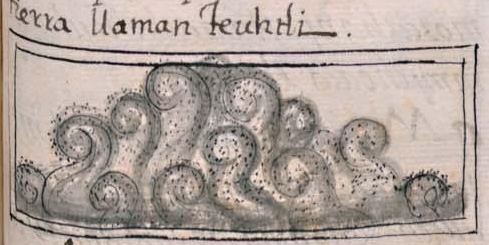 tierra llaman teuhtli.